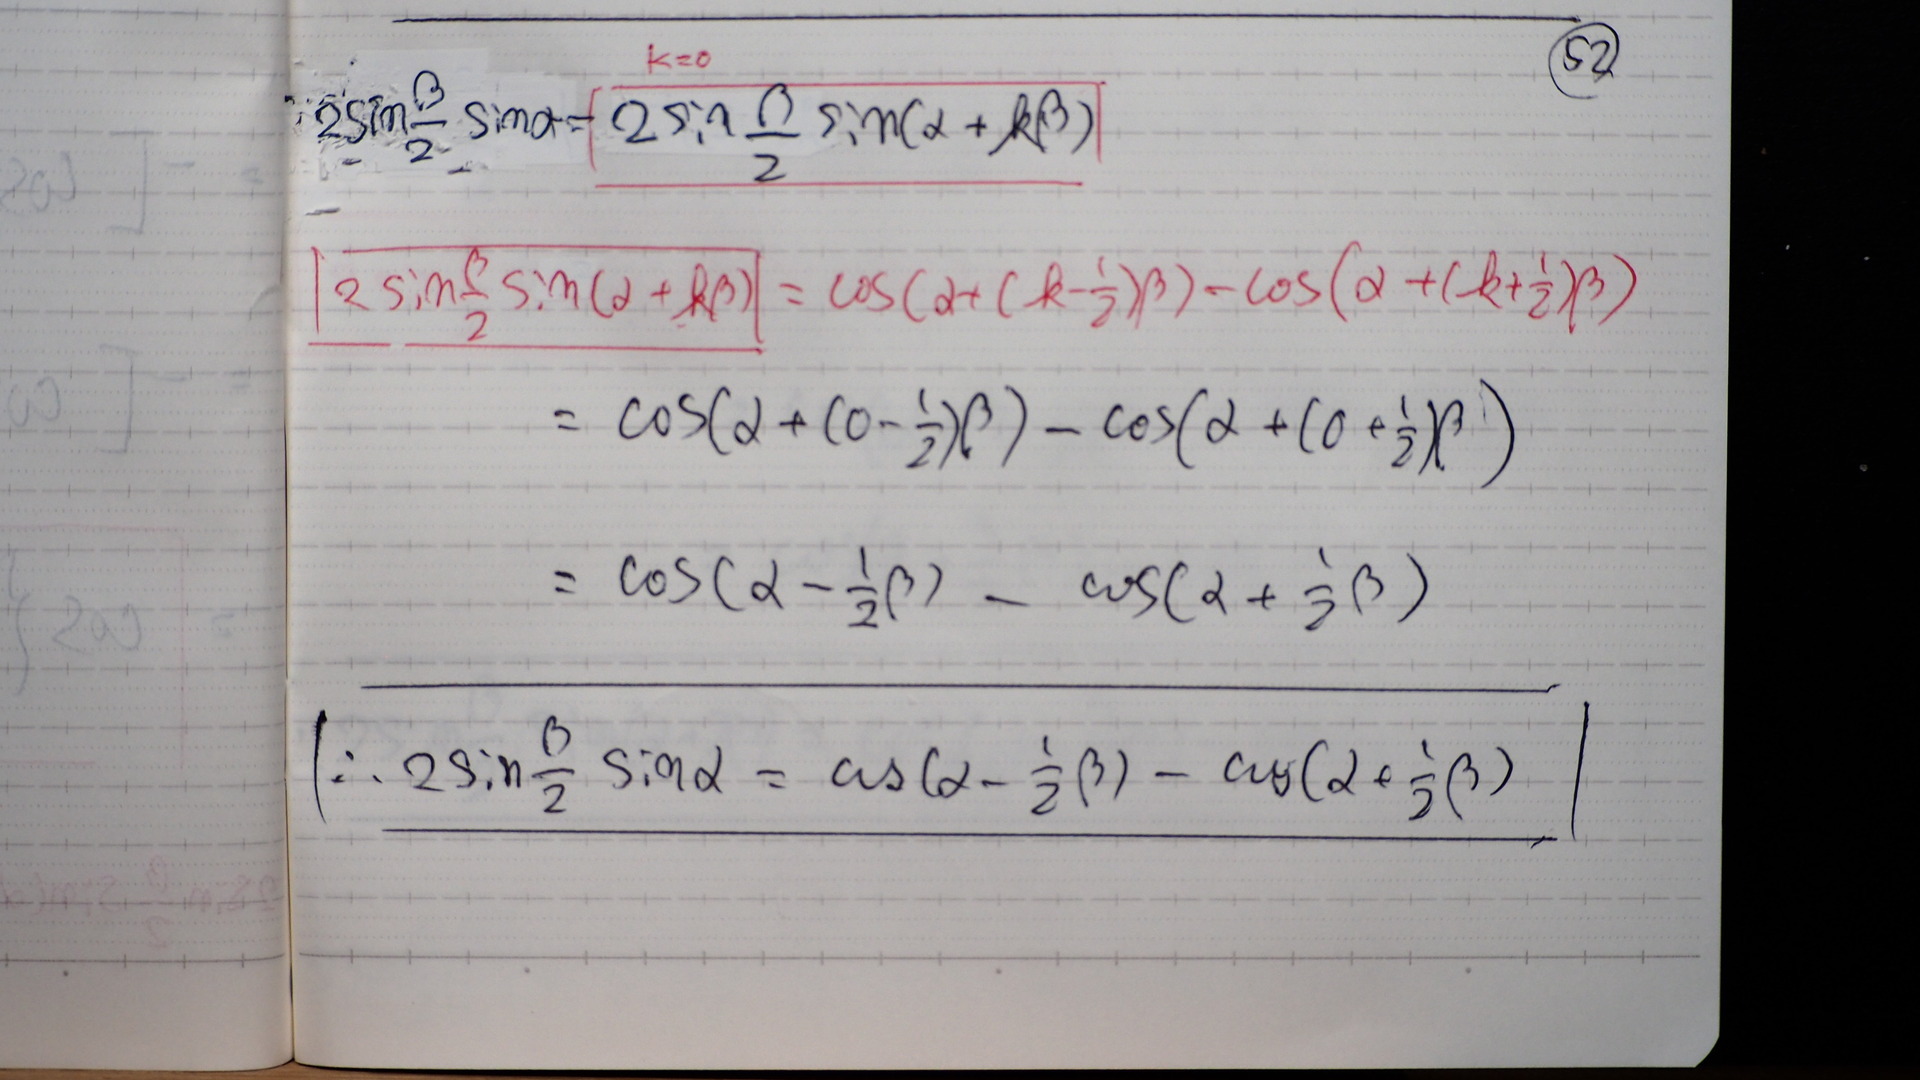 52
k=0
∴ 2sin β/2 sinα = 2 sin β/2 sin(α + kβ)
2 sin β/2 sin(α + kβ) = cos(α+(k-1/2)β) - cos(α+(k+1/2)β)
= cos(α+(0-1/2)β) - cos(α+(0+1/2)β)
= cos(α - 1/2 β) - cos(α + 1/2 β)
∴ 2sin β/2 sinα = cos(α - 1/2 β) - cos(α + 1/2 β)